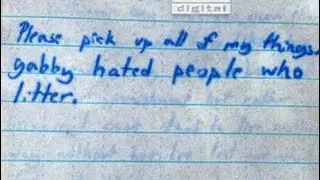 digital
Please pick up all of my things.
gabby hated people who
litter.